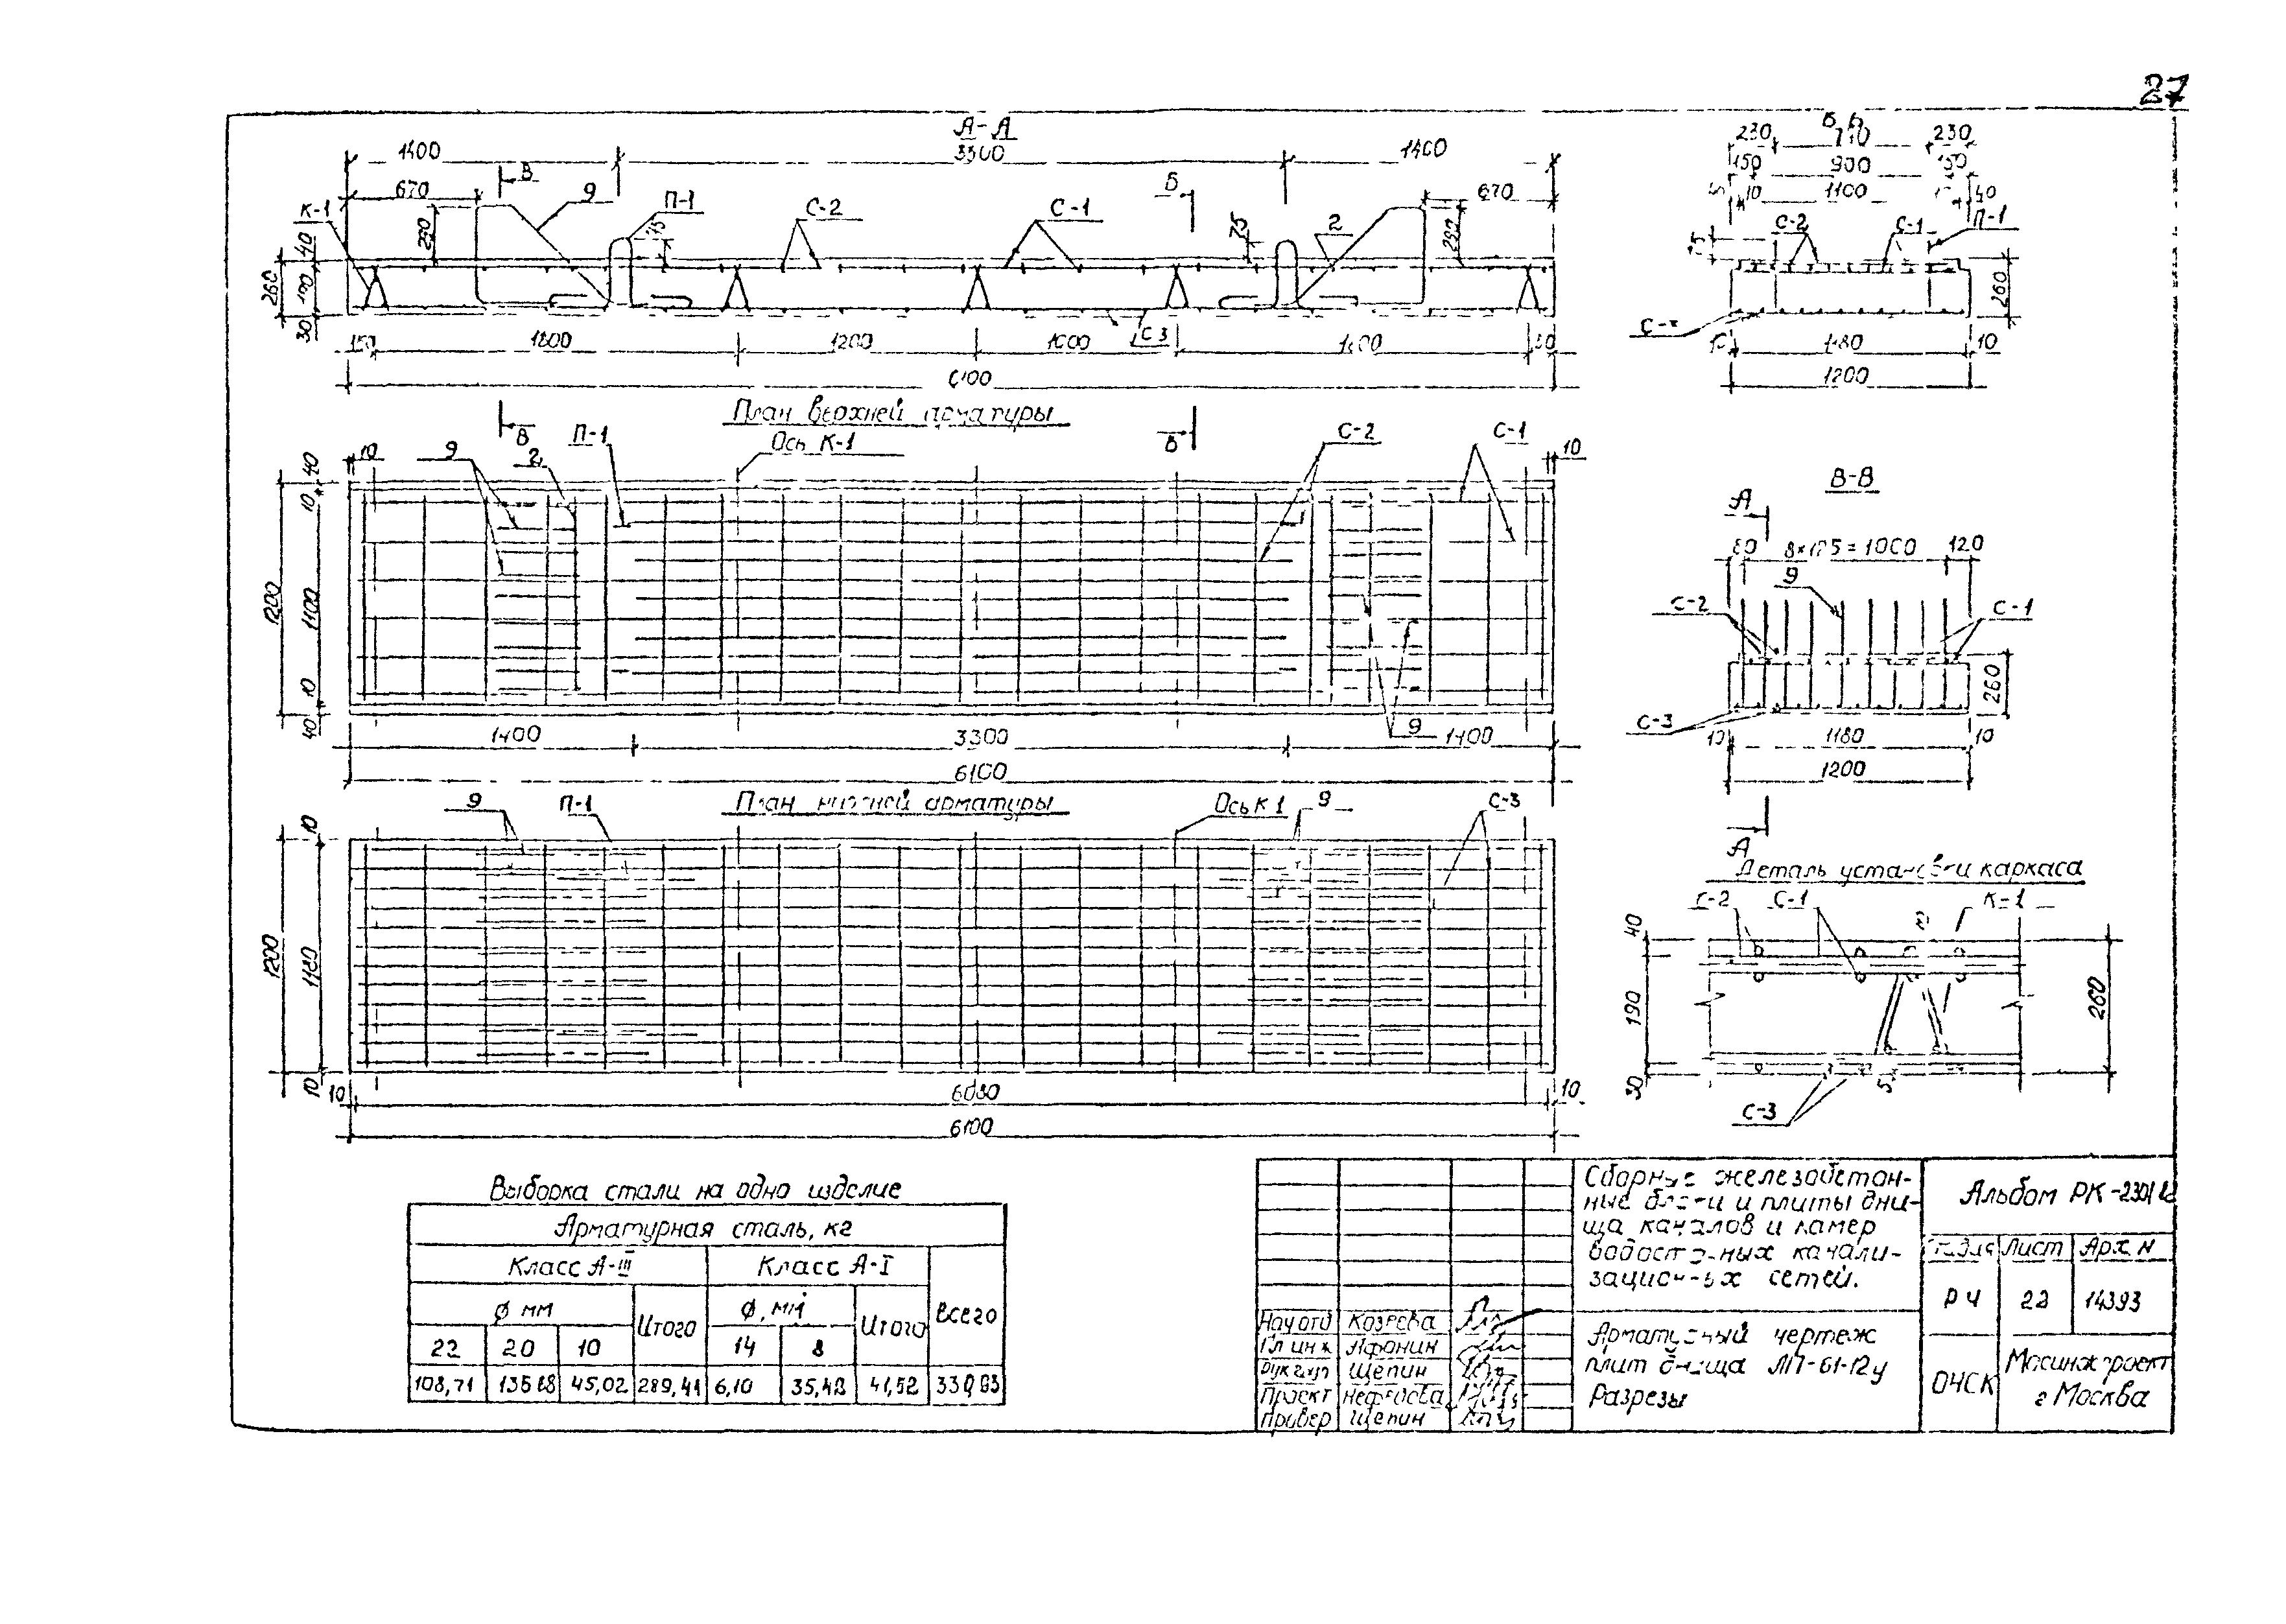 27
А-А
1400
3300
1400
670
В
9
П-1
С-2
С-1
Б
2
670
К-1
290
75
75
290
40
260
190
30
150
1800
1200
1000
С-3
6100
230
710
230
150
900
150
10
1100
40
С-2
С-1
П-1
260
1180
10
1200
План верхней арматуры
В
П-1
Ось К-1
Б
С-2
С-1
10
9
2
10
40
10
1200
1100
10
40
1400
3300
9
1400
6100
В-В
А
80
8×125=1000
120
9
С-2
С-1
260
С-3
10
1180
10
1200
А
9
П-1
План нижней арматуры
Ось К-1
9
С-3
10
1200
1180
10
10
6080
10
6100
Деталь установки каркаса
С-2
С-1
К-1
40
190
30
260
С-3
Выборка стали на одно изделие
Арматурная сталь, кг
Класс А-III
Класс А-I
Всего
ϕ мм
Итого
ϕ, мм
Итого
22
20
10
14
8
108,71
45,02
289,41
6,10
35,42
41,52
Сборные железобетон-
ные блоки и плиты дни-
ща каналов и камер
водосточных канали-
зационных сетей.
Альбом РК-2301
Стадия
Лист
Арх N
РЧ
22
14393
Нач отд
Козеева
Гл инж
Афонин
Рук гр
Щепин
Проект
Провер
Щепин
Арматурный чертеж
плит днища ЛП-61-12у
Разрезы
ОЧСК
Мосинжпроект
г Москва